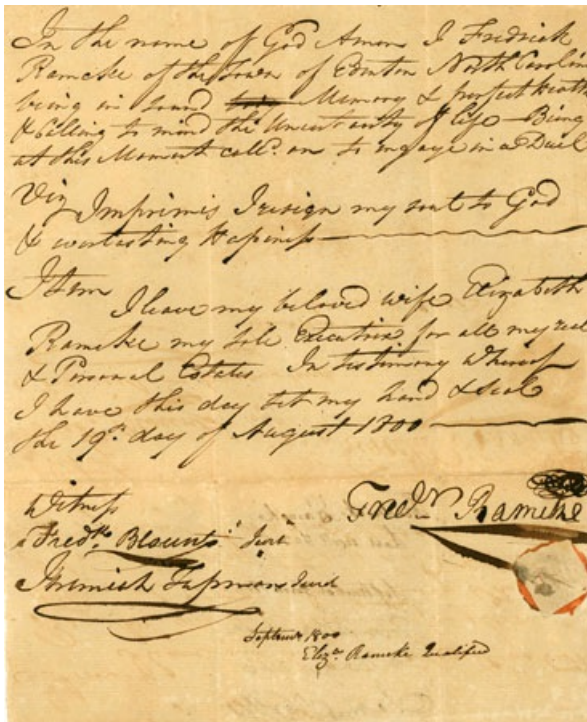 In the name of God Amen I Fredrick
Rameke of the Town of Edenton North Carolin
being in Sound Memory & perfect health
& Calling to mind the Uncertainty of life Being
at this Moment calld. on to engage in a Duel
Viz Imprimis I resign my soul to God
& everlasting Hapiness
Item
I leave my beloved wife Elizabeth
Rameke my Sole Executrix for all my real
& Personal Estates In testimony Whereof
I have this day set my hand & seal
the 19th day of August 1800
Witness
Fredk. Blount Jurat
Jeremiah
Fredk. Rameke
Septemr. 1800
Elizth. Rameke Qualified